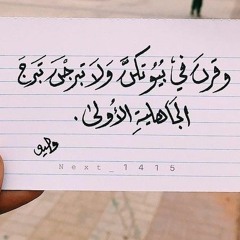 وقرن في بيوتكن ولا تبرجن تبرج
الجاهلية الأولى.
Next_1415